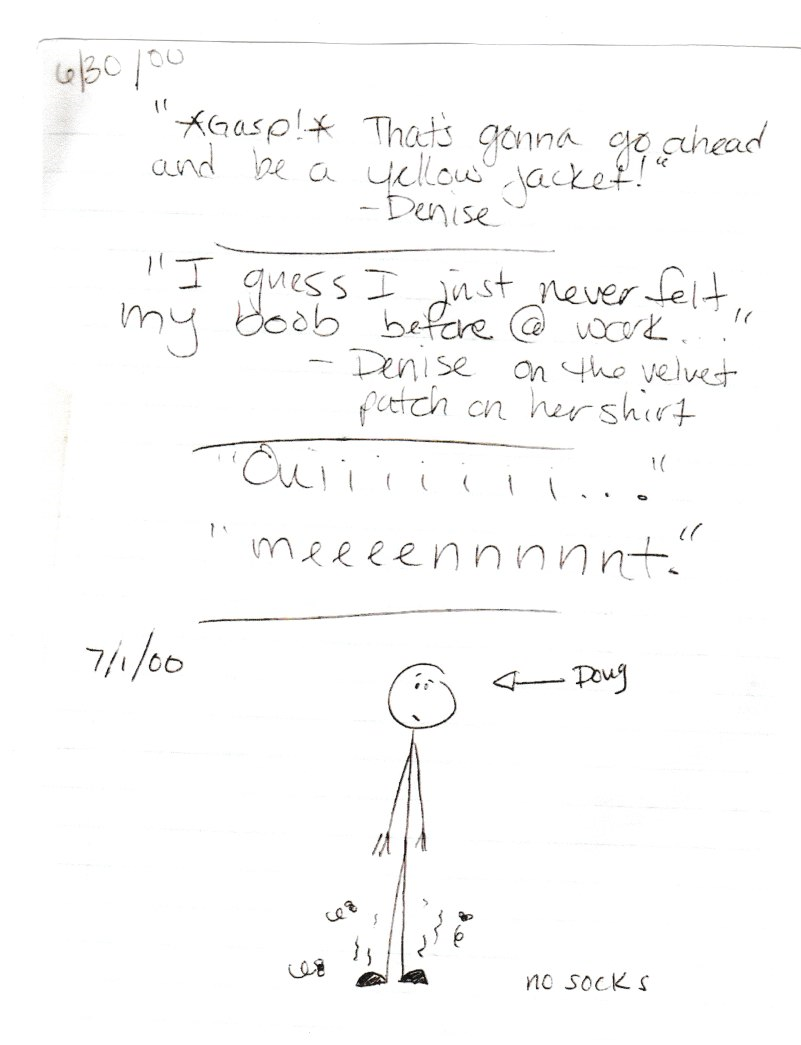 6/30/00
"*Gasp!* That's gonna go ahead
and be a yellow jacket!"
-Denise
"I guess I just never felt
my boob before @ work..."
- Denise on the velvet
patch on her shirt
"Ouiiiiiiii..."
"meeeennnnnnt."
7/1/00
Doug
no socks